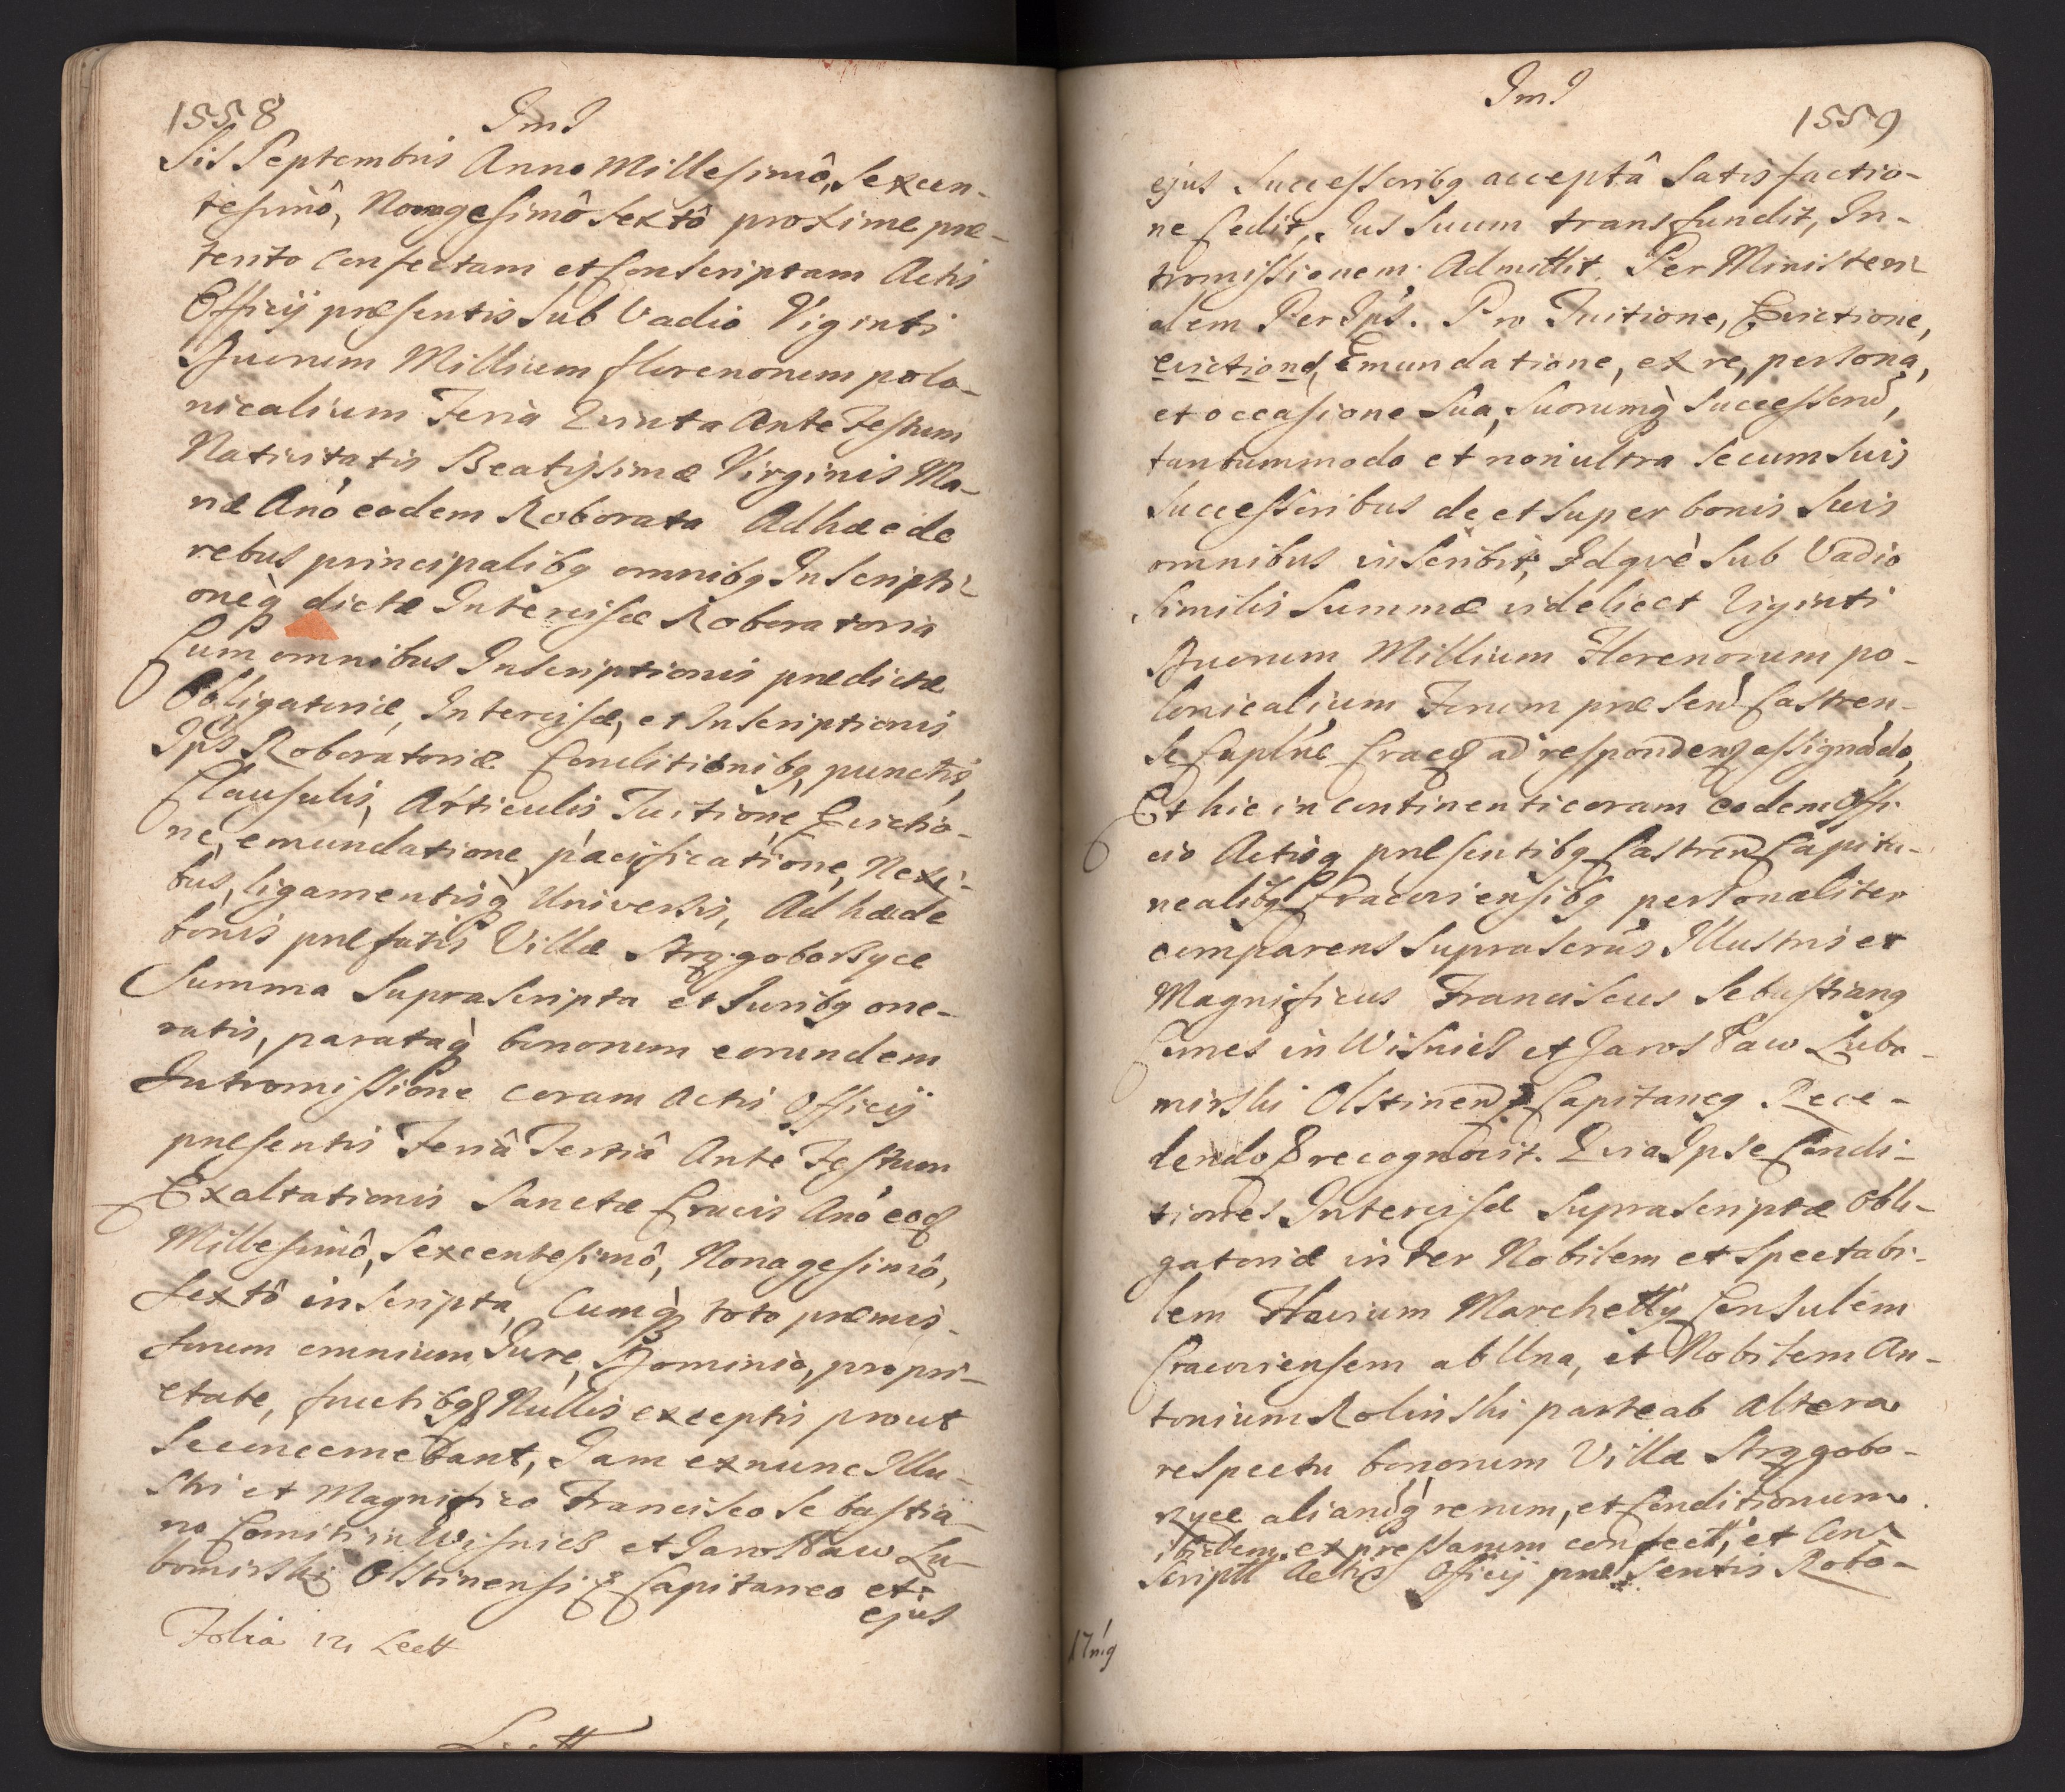 1558
ImI
sis Septembris Anno Millesimô, Sexcen-
tesimô, Nonagesimô Sextô proxime præ-
terito Confectam et Conscriptam Actis
Officij præsentis Sub Vadio Viginti
Duorum Millium florenorum polo-
nicalium Feria Quinta Ante Festum
Nativitatis Beatissimæ Virginis Ma-
riæ Anō eodem Roborata Ad hæc de
rebus principalibꝫ omnibꝫ Inscripti-
oneq́ dictæ Intercisæ Roboratoria
Cum omnibus Inscriptionis prædictæ
Obligatoriæ, Intercisæ, et Inscriptionis
Ips Roboratoriæ Conditionibꝫ, punctis,
Clausulis, Articulis Tuitione, Evictio-
ne, emundatione, pacificatione, Nexi-
bus, ligamentisq́ Universis, Ad hæc de
bonis præfatis Villæ Strzgoborzyce
Summa Suprascripta et Juribꝫ one-
ratis, parataq́ bonorum eorundem
Intromissione coram Actis Officij
præsentis Feriâ Tertiâ Ante Festum
Exaltationis Sanctæ Crucis Anō eoḋ
Millesimô, Sexcentesimô, Nonagesimô,
Sextô inscripta, Cumq́ toto præmis-
sorum omnium Jure, Dominio, propri-
etate, fructibꝫꝫ Nullis exceptis prout
se concernebant, Jam ex nunc Illu-
stri et Magnifico Francisco Sebastia-
no Comiti in Wisnicz et Jarosław Lu-
bomirski Olstinensi Capitaneo et
ejus
Folia 12 Lectt
Lectt
ImI
1559
ejus Successoribꝫ acceptâ Satisfactio-
ne Cedit, Jus Suum transfundit, In-
tromissionem Admittit. Per Ministeri-
alem Per Ips. Pro Tuitione, Evictione,
evictione, Emundatione, ex re, persona,
et occasione Sua, Suorumq́ Successorū,
tantummodo et non ultra Secum Suis
Successoribus de et super bonis Suis
omnibus inscribit, Idqvè Sub Vadio
Similis Summæ videlicet Viginti
Duorum Millium Florenorum po-
lonicalium Forum præsens Castren-
se Caplne Cracoꝫ ad respondenꝫ assignādo,
Et hic in continenti coram eodem Offi-
cio Actisq́ præsentibꝫ Castren Capita-
nealibꝫ Cracoviensibꝫ personaliter
comparens Suprascrus Illustris et
Magnificus Franciscus Sebastianꝫ
Comes in Wisnicz et Jarosław Lubo-
mirski Olstinen Capitaneꝫ Rece-
dendo & recognovit. Quia Ipse Condi-
tiones Intercisæ Suprascriptæ Obli-
gatoriæ inter Nobilem et Spectabi-
lem Flavium Marchetty Consulem
Cracoviensem ab Una, et Nobilem An-
tonium Rolinski parte ab altera
respectu bonorum Villæ Strzgobo-
rzyce aliaruq́ rerum, et Conditionum
ibidem expressarum confect, et Con-
scriptt Actis Officij præsentis Robo-